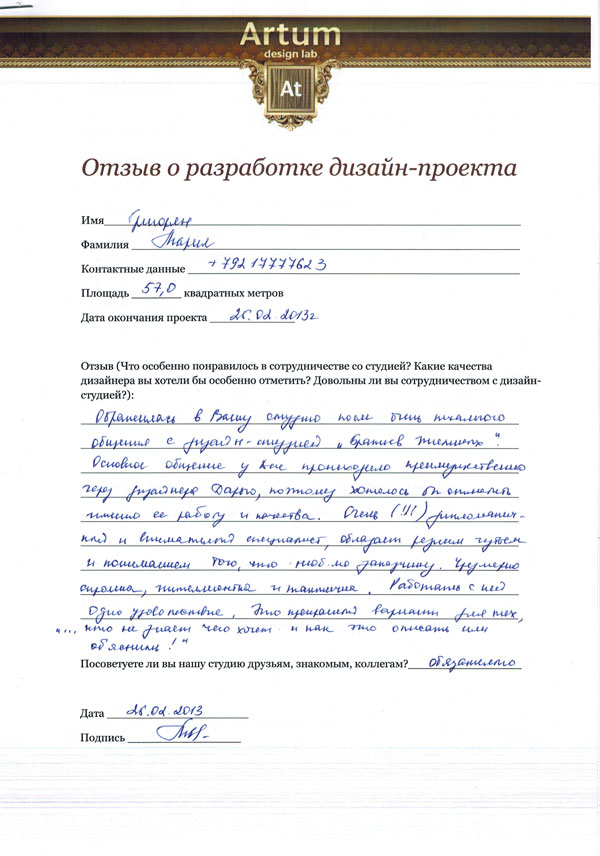 Artum
design lab
At
Отзыв о разработке дизайн-проекта
Имя Григорян
Фамилия Мария
Контактные данные +79217777623
Площадь 57,0 квадратных метров
Дата окончания проекта 26.02.2013г
Отзыв (Что особенно понравилось в сотрудничестве со студией? Какие качества
дизайнера вы хотели бы особенно отметить? Довольны ли вы сотрудничеством с дизайн-
студией?):
Обратилась в Вашу студию после очень
общения с дизайн-студией „ ".
Основное общение у нас происходило преимущественно
через дизайнера Дарью, поэтому хотелось бы отметить
именно ее работу и качества. Очень (!!!) дипломатич-
ный и внимательный специалист, обладает редким чутьем
и пониманием того, что заказчику. Чрезмерно
скромна, интеллигентна и тактична. Работать с ней
Одно удовольствие. Это прекрасный вариант для тех,
„... кто не знает чего хочет и как это описать или
объяснить!"
Посоветуете ли вы нашу студию друзьям, знакомым, коллегам? обязательно
Дата 26.02.2013
Подпись